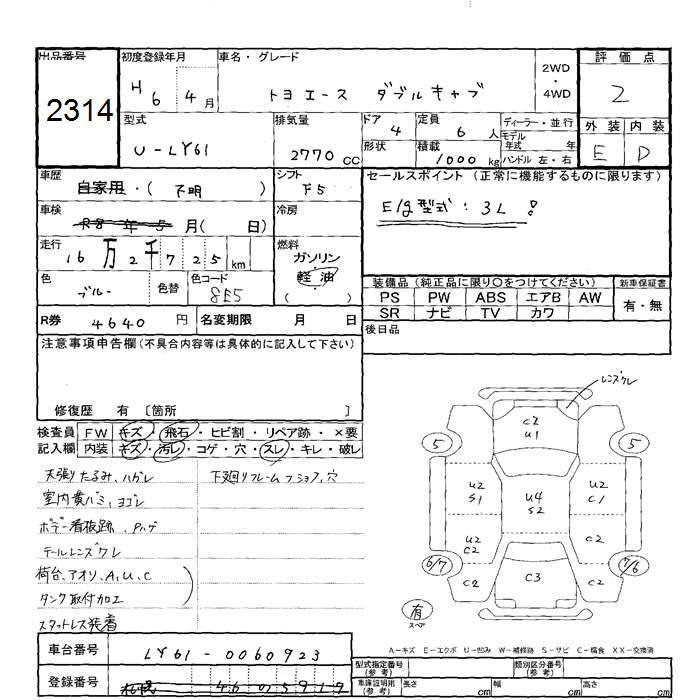 出品番号 初度登録年月 車名・グレード 2WD・4WD 評価点
2314 H 6 4月 トヨエース ダブルキャブ 2
型式 排気量 ドア 定員 ディーラー・並行 外装 内装
U-LY61 2770 cc 4 6人 モデル年式 年 E D
形状 積載 1000 kg ハンドル 左・右
車歴 自家用・(不明) シフト F5 セールスポイント (正常に機能するものに限ります)
車検 R8年5月( 日) 冷房 E/g型式：3L !
走行 16万2千725km 燃料 ガソリン 軽油 ( )
色 ブルー 色替 色コード 8E5 装備品 (純正品に限り○をつけてください) 新車保証書
PS PW ABS エアB AW 有・無
SR ナビ TV カワ
R券 4640円 名変期限 月 日 後日品
注意事項申告欄(不具合内容等は具体的に記入して下さい)
修復歴 有 〔箇所 〕
検査員 FW キズ・飛石・ヒビ割・リペア跡・×要
記入欄 内装 キズ・汚レ・コゲ・穴・スレ・キレ・破レ
天張りたるみ、ハガレ 下廻りフレーム
室内黄バミ、ヨゴレ
ボデー看板跡、Pハゲ
テールレンズワレ
荷台、アオリ、A,U,C
タンク取付加工
スタットレス装着
レンズワレ
C2
U1
5 5
U2 S1 U4 S2 U2 C1
U2 C2 C2
6/7 C2 C3 C2 7/6
有
スペア
A-キズ E-エクボ U-凹み W-補修跡 S-サビ C-腐食 XX-交換済
車台番号 LY61-0060923
型式指定番号(参考) 類別区分番号(参考)
登録番号 札幌
車庫証明用(参考) 長さ cm 幅 cm 高さ cm